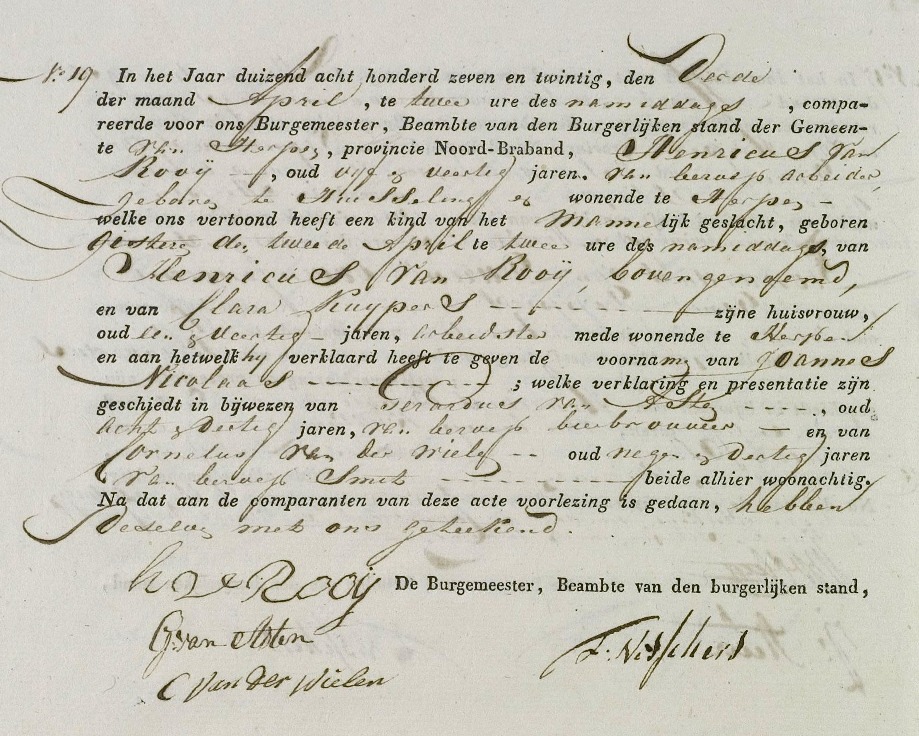 No. 19 In het Jaar duizend acht honderd zeven en twintig, den Derde
der maand April, te twee ure des namiddags, compa-
reerde voor ons Burgemeester, Beambte van den Burgerlijken stand der Gemeen-
te van Herpen, provincie Noord-Braband, Henricus van
Rooij —, oud vijf & veertig jaren. van beroep arbeider,
geboren te Huisseling en wonende te Herpen —
welke ons vertoond heeft een kind van het Mannelijk geslacht, geboren
gisteren den tweede April te twee ure des namiddags, van
Henricus van Rooij, bovengenoemd,
en van Clara Kuypers - - - - - - - zijne huisvrouw,
oud een & veertig — jaren, arbeidster mede wonende te Herpen
en aan hetwelk hy verklaard heeft te geven de voornamen van Joannes
Nicolaas - - - - - - - ; welke verklaring en presentatie zijn
geschiedt in bijwezen van Gerardus van Asten - - - -, oud
acht & dertig jaren, van beroep bierbrouwer — en van
Cornelus van der Wielen -- oud negen & dertig jaren
van beroep Smit - - - - - - - beide alhier woonachtig.
Na dat aan de comparanten van deze acte voorlezing is gedaan, hebben
Dezelve met ons geteekend.
H v Rooij De Burgemeester, Beambte van den burgerlijken stand,
G. van Asten
C van der Wielen